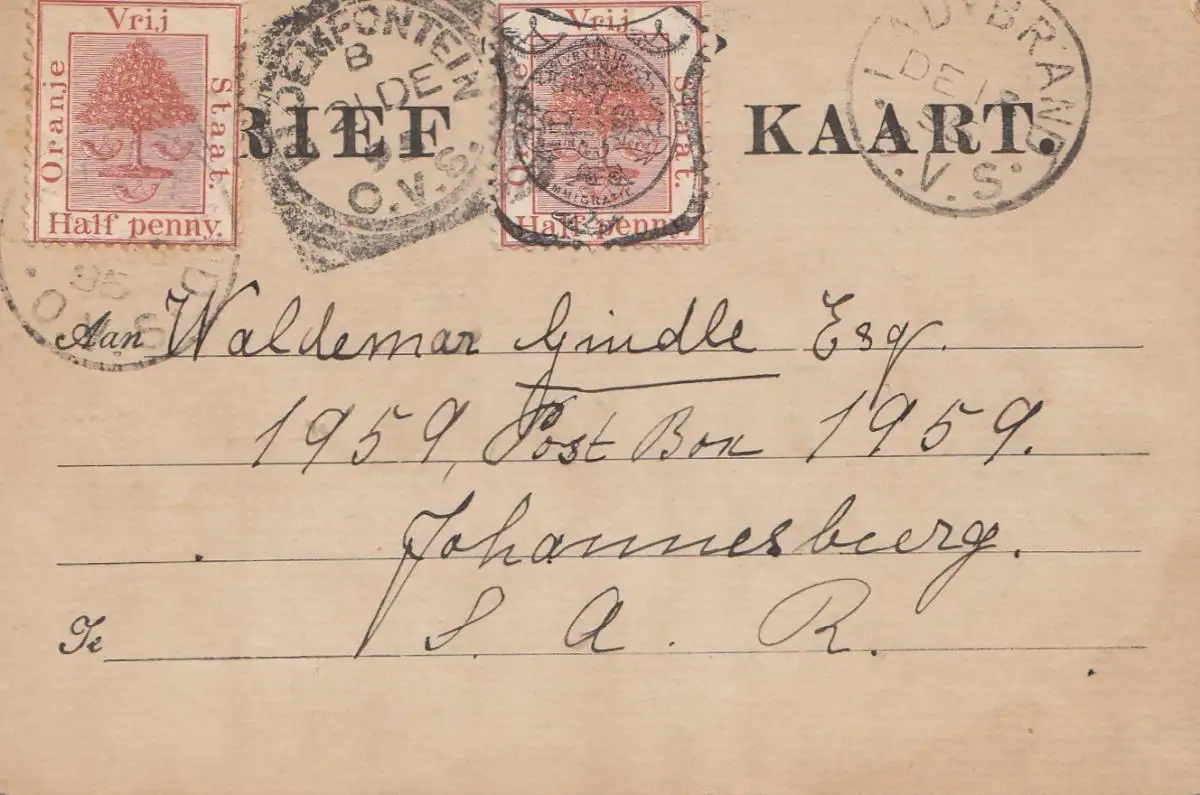 Oranje Vrij Staat.
Half penny.
Vrij Staat.
Half penny.
B
21 DE
O.V.S.
LADYBRAND
DE 1
O.V.S.
95
BRIEF KAART.
Aan Waldemar Gindle Esq.
1959, Post Box 1959.
Johannesburg.
Te S. A. R.